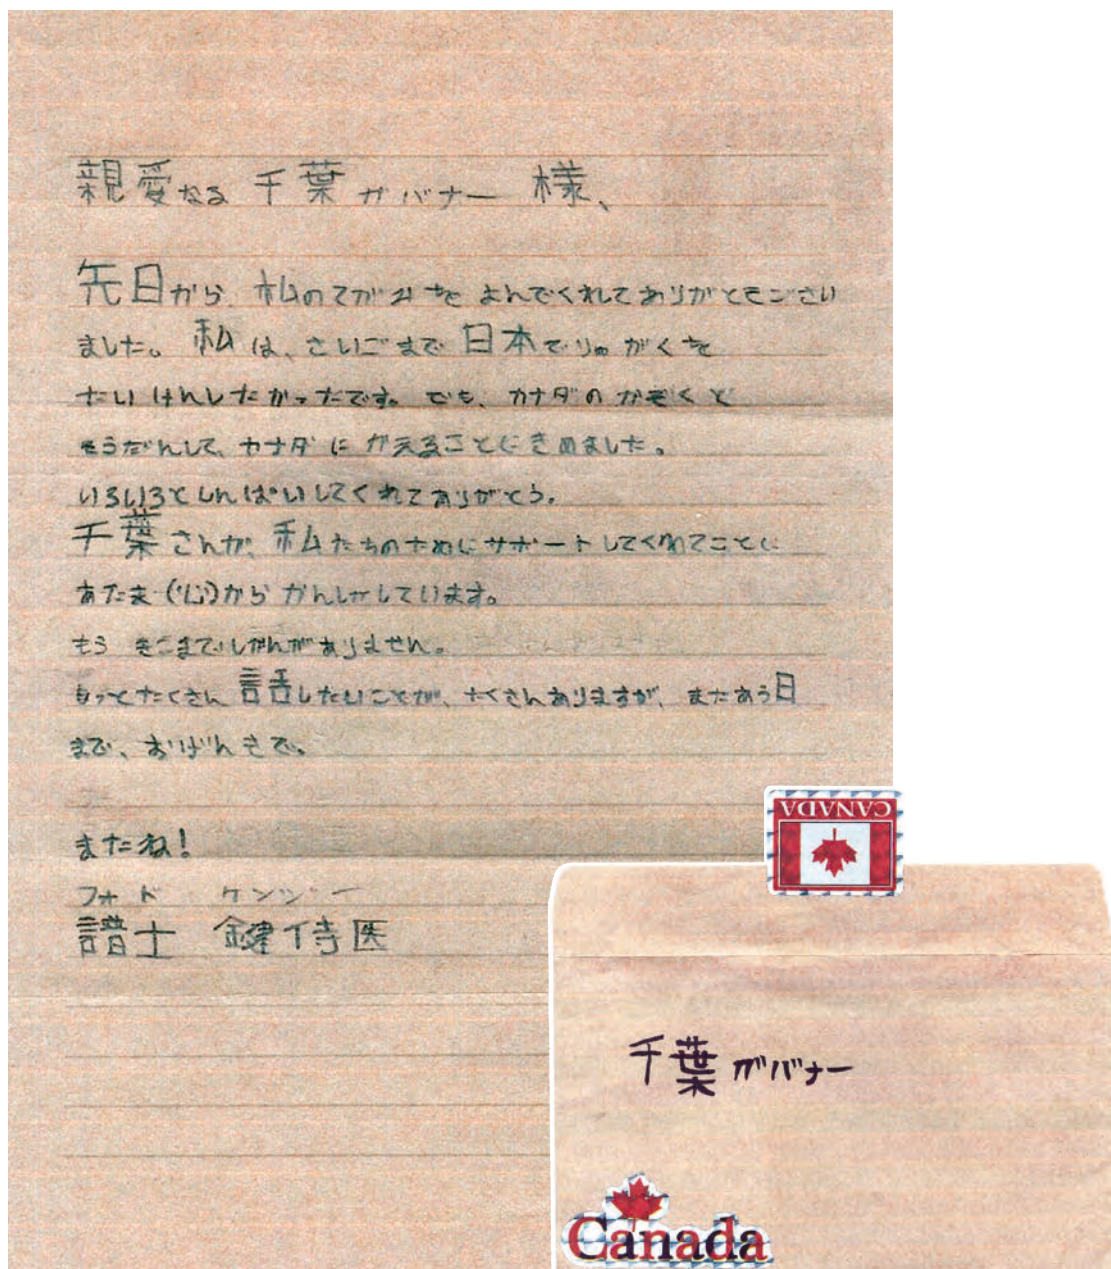 親愛なる 千葉 ガバナー 様、
先日から、私のてがみを よんでくれてありがとうござい
ました。私は、さいごまで 日本でりゅがくを
たいけんしたかったです。でも、カナダの かぞくと
そうだんして、カナダに かえることにきめました。
いろいろと しんぱいしてくれて ありがとう。
千葉さんが、私たちのために サポートしてくれてことに
あたま(心)から かんしゃしています。
もう そこまで じかんがありません。
もっとたくさん 話したいことが、たくさんありますが、またあう日
まで、おげんきで。
またね!
フォド ケンジー
譜士 鍵侍医
CANADA
千葉 ガバナー
Canada